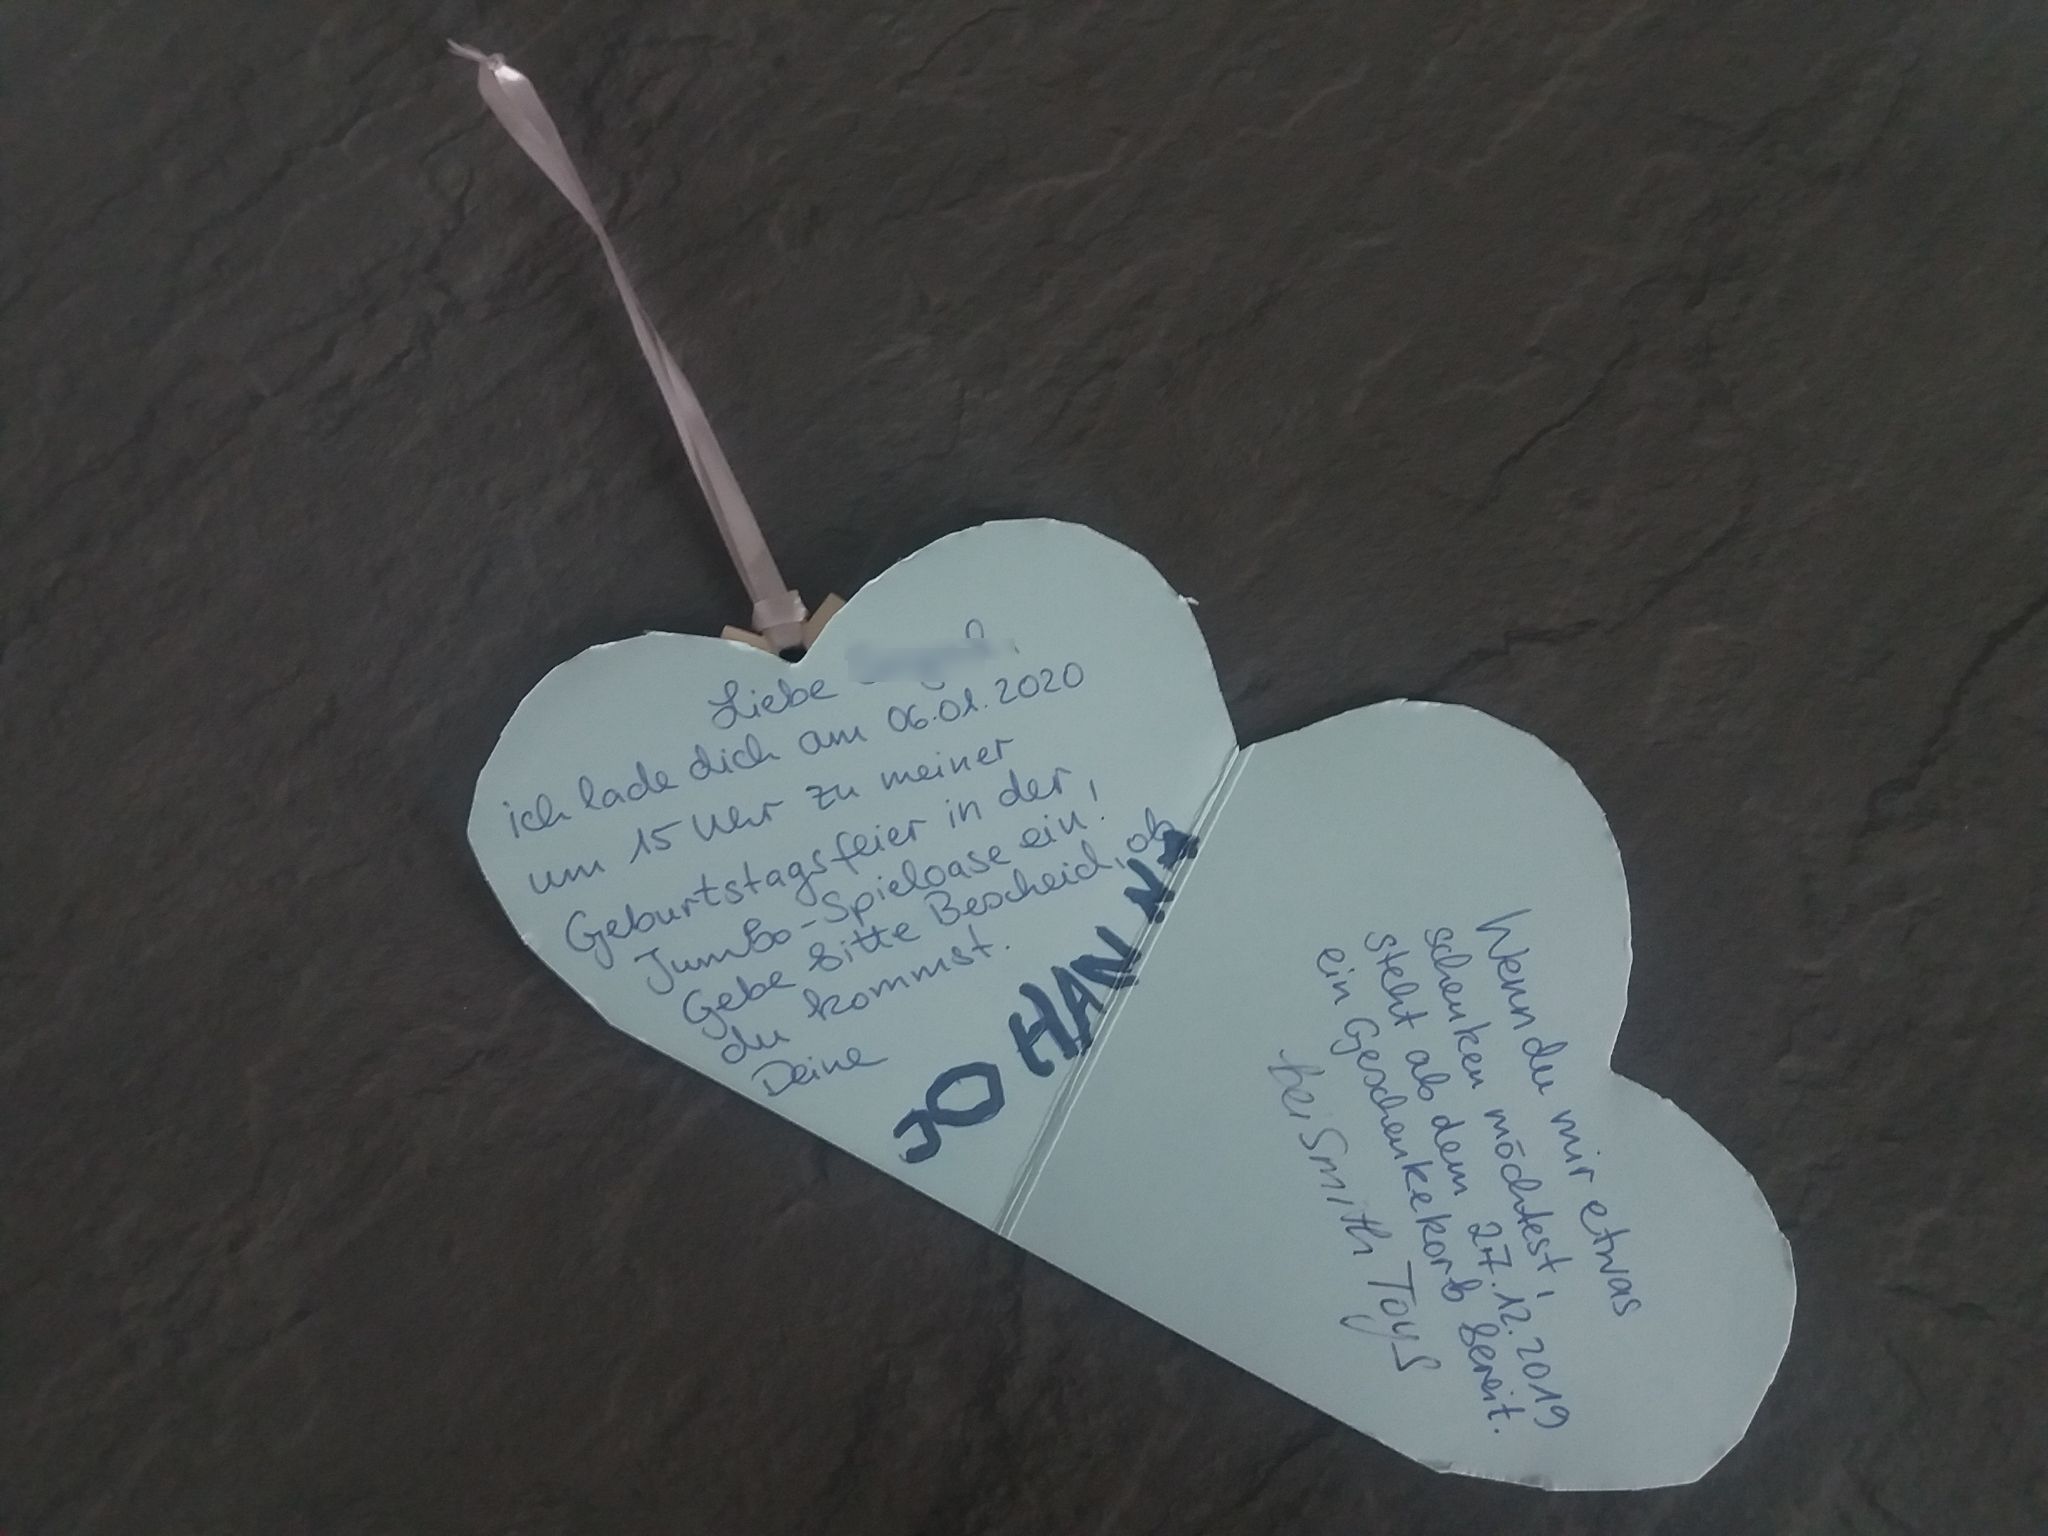 Liebe
ich lade dich am 06.01.2020
um 15 Uhr zu meiner
Geburtstagsfeier in der
Jumbo-Spieloase ein!
Gebe bitte Bescheid, ob
du kommst.
Deine
JOHANNA
Wenn du mir etwas
schenken möchtest,
steht ab dem 27.12.2019
ein Geschenkekorb bereit.
bei Smith Toys